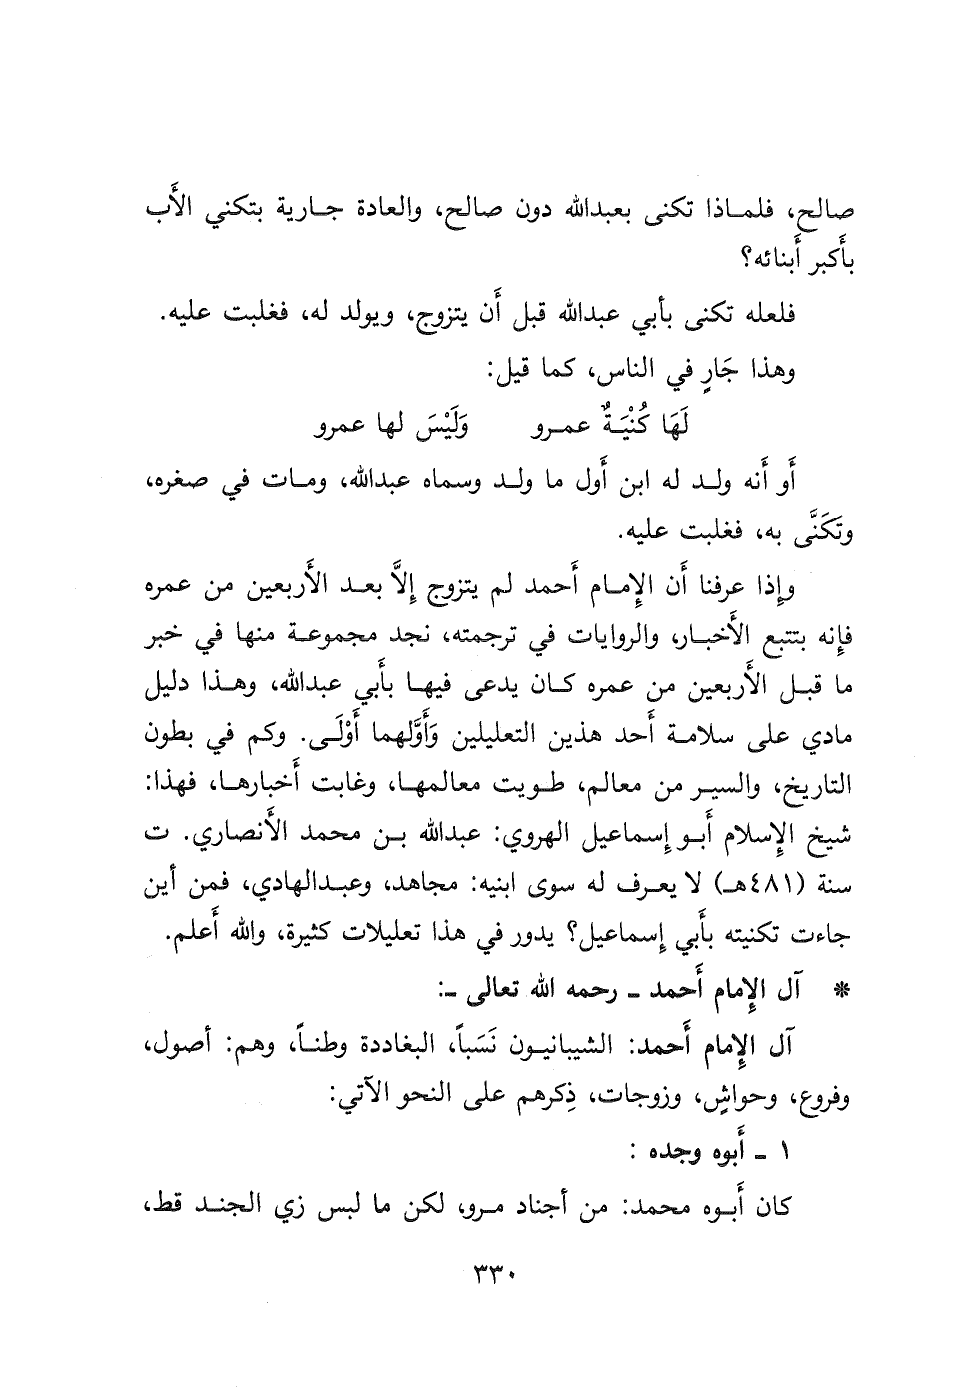 صالح، فلماذا تكنى بعبدالله دون صالح، والعادة جارية بتكني الأَب
بأَكبر أَبنائه؟
فلعله تكنى بأَبي عبدالله قبل أَن يتزوج، ويولد له، فغلبت عليه.
وهذا جَارٍ في الناس، كما قيل:
لَهَا كُنْيَةٌ عمرو وَلَيْسَ لها عمرو
أَو أَنه ولد له ابن أَول ما ولد وسماه عبدالله، ومات في صغره،
وتَكَنَّى به، فغلبت عليه.
وإِذا عرفنا أَن الإِمام أَحمد لم يتزوج إِلاَّ بعد الأَربعين من عمره
فإِنه بتتبع الأَخبار، والروايات في ترجمته، نجد مجموعة منها في خبر
ما قبل الأَربعين من عمره كان يدعى فيها بأَبي عبدالله، وهذا دليل
مادي على سلامة أَحد هذين التعليلين وَأَوَّلهما أَوْلَى. وكم في بطون
التاريخ، والسير من معالم، طويت معالمها، وغابت أَخبارها، فهذا:
شيخ الإِسلام أَبو إِسماعيل الهروي: عبدالله بن محمد الأَنصاري. ت
سنة (٤٨١هـ) لا يعرف له سوى ابنيه: مجاهد، وعبدالهادي، فمن أين
جاءت تكنيته بأَبي إِسماعيل؟ يدور في هذا تعليلات كثيرة، والله أَعلم.
* آل الإِمام أَحمد ـ رحمه الله تعالى ـ:
آل الإِمام أَحمد: الشيبانيون نَسَباً، البغاددة وطناً، وهم: أصول،
وفروع، وحواشٍ، وزوجات، ذِكرهم على النحو الآتي:
١ ـ أَبوه وجده :
كان أَبوه محمد: من أجناد مرو، لكن ما لبس زي الجند قط،
٣٣٠